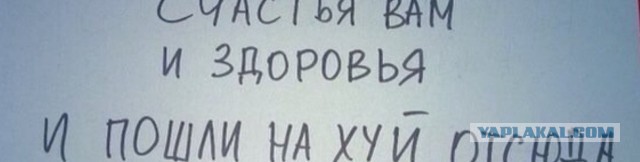 СЧАСТЬЯ ВАМ
И ЗДОРОВЬЯ
YAPLAKAL.COM
И ПОШЛИ НА ХУЙ ОТСЮДА